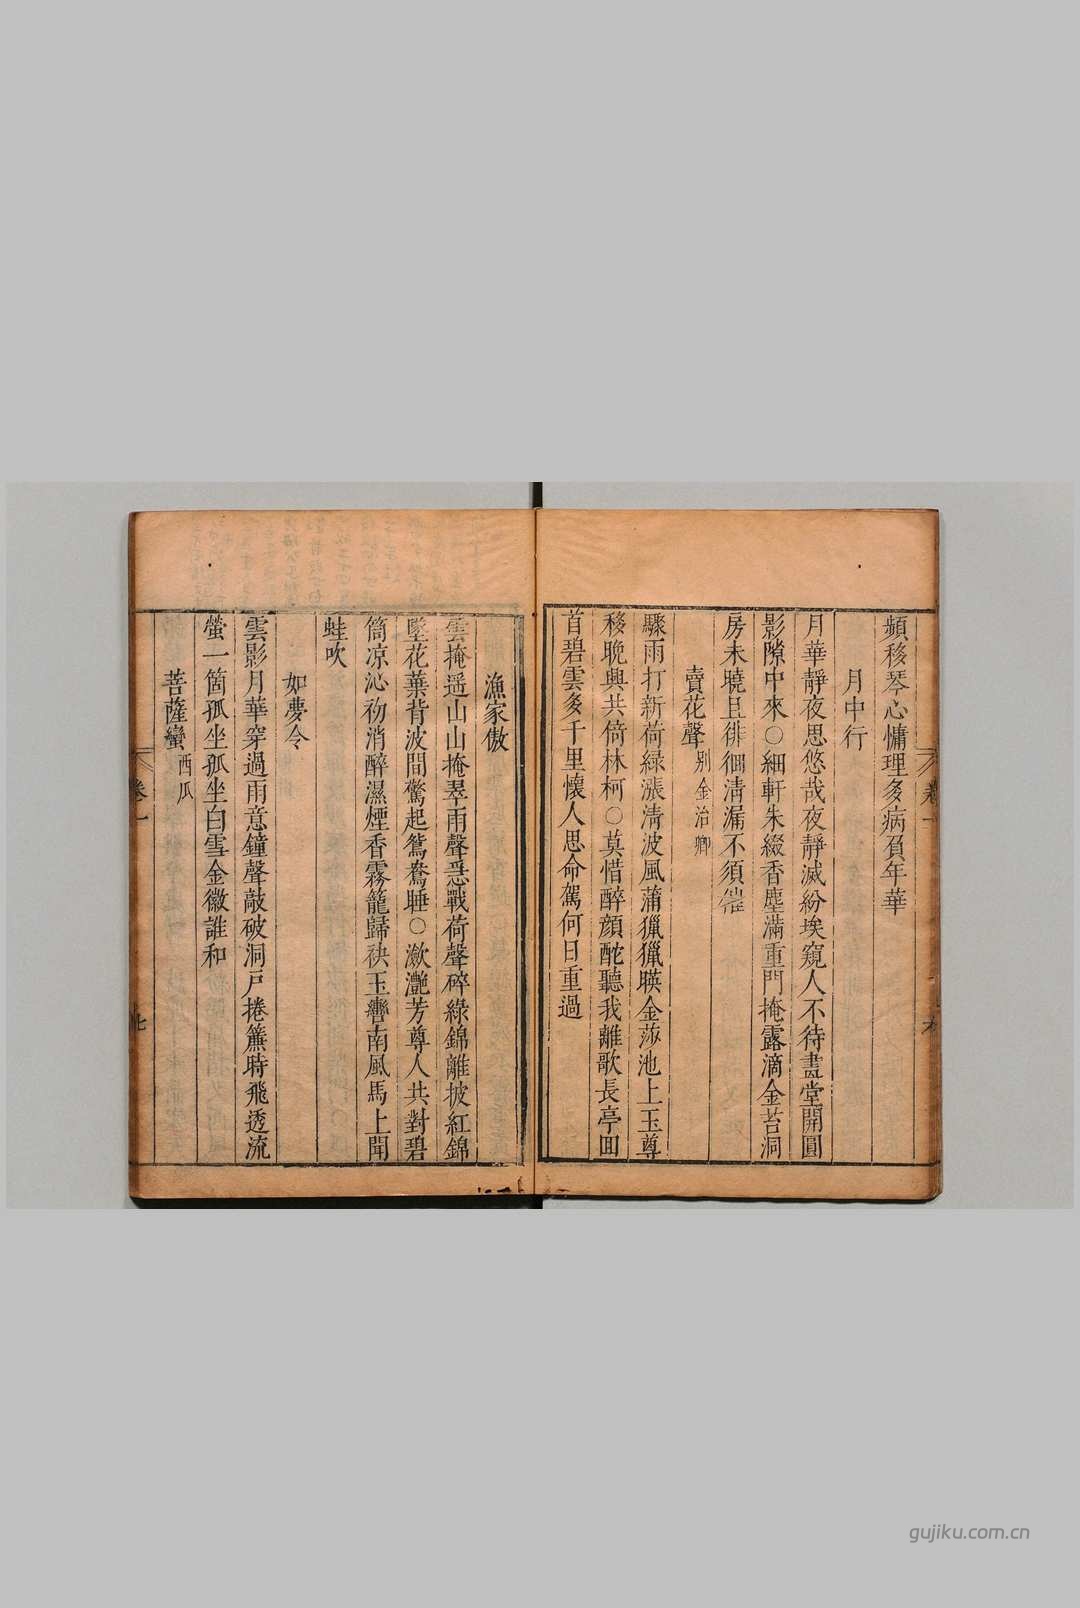 頻移琴心慵理多病負年華
月中行
月華靜夜思悠哉夜靜滅紛埃窺人不待畫堂開圓
影隙中來○細軒朱綴香塵滿重門掩露滴金苔洞
房未曉且徘徊清漏不須催
賣花聲 別金治卿
驟雨打新荷綠漲清波風蒲獵獵暎金莎池上玉尊
移晚興共倚林柯○莫惜醉顏酡聽我離歌長亭回
首碧雲多千里懷人思命駕何日重過
卷一
漁家傲
雲掩遥山山掩翠雨聲惎戰荷聲碎綠錦離披紅錦
墜花葉背波間驚起鴛鴦睡○瀲灧芳尊人共對碧
筒凉沁礿消醉濕煙香霧籠歸袂玉轡南風馬上聞
蛙吹
如夢令
雲影月華穿過雨意鐘聲敲破洞戶捲簾時飛透流
螢一箇孤坐孤坐白雪金徽誰和
菩薩蠻 西瓜
卷一
gujiku.com.cn